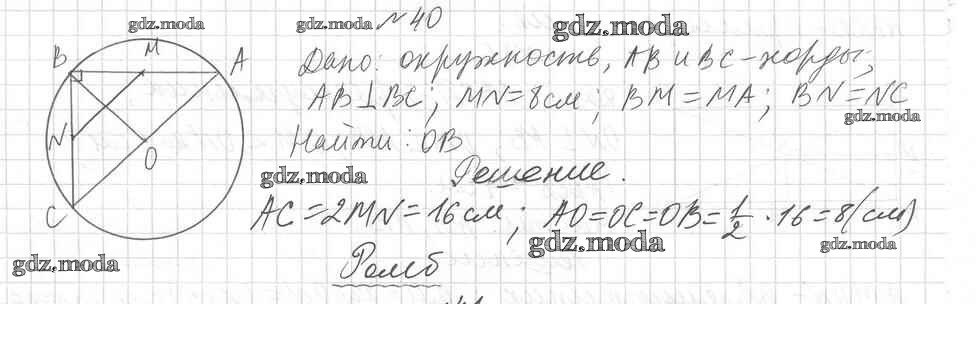 gdz.moda
№40
gdz.moda
gdz.moda
Дано: окружность, AB и BC-хорды;
AB⊥BC; MN=8см; BM=MA; BN=NC
gdz.moda
Найти: OB
B
M
A
N
O
C
gdz.moda
Решение.
AC=2MN=16см; AO=OC=OB=1/2·16=8(см)
gdz.moda
gdz.moda
gdz.moda
Ромб